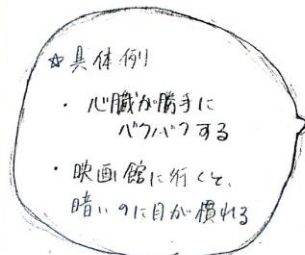 ☆具体例
・心臓が勝手に
バクバクする
・映画館に行くと、
暗いのに目が慣れる